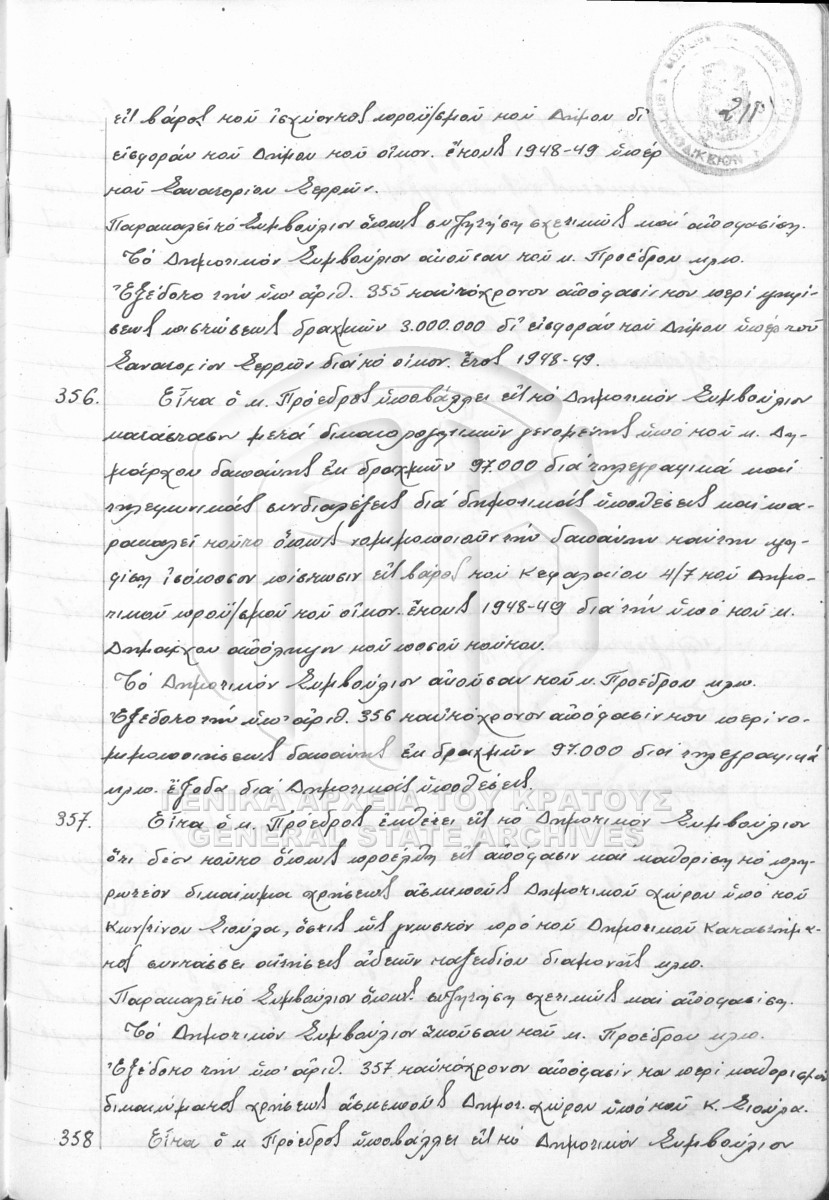 εἰς βάρος τοῦ ἰσχύοντος προϋ/σμοῦ τοῦ Δήμου δι'
εἰσφοράν τοῦ Δήμου τοῦ οἰκον. ἔτους 1948-49 ὑπέρ
τοῦ Σανατορίου Σερρῶν.
Παρακαλεῖ τό Συμβούλιον ὅπως συζητήση σχετικῶς καί ἀποφασίση.
Τό Δημοτικόν Συμβούλιον ἀκοῦσαν τοῦ κ. Προέδρου κλπ.
Ἐξέδοτο τήν ὑπ' ἀριθ. 355 ταὐτόχρονον ἀπόφασίν του περί ψηφί-
σεως πιστώσεως δραχμῶν 3.000.000 δι' εἰσφοράν τοῦ Δήμου ὑπέρ τοῦ
Σανατορίου Σερρῶν διά τό οἰκον. ἔτος 1948-49.
356. Εἶτα ὁ κ. Πρόεδρος ὑποβάλλει εἰς τό Δημοτικόν Συμβούλιον
κατάστασιν μετά δικαιολογητικῶν γενομένης ὑπό τοῦ κ. Δη-
μάρχου δαπάνης ἐκ δραχμῶν 97.000 διά τηλεγραφικά καί
τηλεφωνικάς συνδιαλέξεις διά δημοτικάς ὑποθέσεις καί πα-
ρακαλεῖ τοῦτο ὅπως νομιμοποιοῦν τήν δαπάνην ταύτην ψη-
φίση ἰσόποσον πίστωσιν εἰς βάρος τοῦ Κεφαλαίου 4/7 τοῦ Δημο-
τικοῦ προϋ/σμοῦ τοῦ οἰκον. ἔτους 1948-49 διά τήν ὑπό τοῦ κ.
Δημάρχου ἀπόληψιν τοῦ ποσοῦ τούτου.
Τό Δημοτικόν Συμβούλιον ἀκοῦσαν τοῦ κ. Προέδρου κλπ.
Ἐξέδοτο τήν ὑπ' ἀριθ. 356 ταὐτόχρονον ἀπόφασίν του περί νο-
μιμοποιήσεως δαπάνης ἐκ δραχμῶν 97.000 διά τηλεγραφικά
κλπ. ἔξοδα διά Δημοτικάς ὑποθέσεις.
ΓΕΝΙΚΑ ΑΡΧΕΙΑ ΤΟΥ ΚΡΑΤΟΥΣ
GENERAL STATE ARCHIVES
357. Εἶτα ὁ κ. Πρόεδρος ἐκθέτει εἰς τό Δημοτικόν Συμβούλιον
ὅτι δέον τοῦτο ὅπως προέλθη εἰς ἀπόφασιν καί καθορίση τό πλη-
ρωτέον δικαίωμα χρήσεως ἀσκεποῦς Δημοτικοῦ χώρου ὑπό τοῦ
Κων/τίνου Σιούλα, ὅστις ὡς γνωστόν πρό τοῦ Δημοτικοῦ Καταστήμα-
τος συντάσσει αἰτήσεις ἀδειῶν ταξειδίου διαμονῆς κλπ.
Παρακαλεῖ τό Συμβούλιον ὅπως συζητήση σχετικῶς καί ἀποφασίση.
Τό Δημοτικόν Συμβούλιον ἀκοῦσαν τοῦ κ. Προέδρου κλπ.
Ἐξέδοτο τήν ὑπ' ἀριθ. 357 ταὐτόχρονον ἀπόφασίν του περί καθορισμοῦ
δικαιώματος χρήσεως ἀσκεποῦς Δημοτ. χώρου ὑπό τοῦ Κ. Σιούλα.
358 Εἶτα ὁ κ. Πρόεδρος ὑποβάλλει εἰς τό Δημοτικόν Συμβούλιον